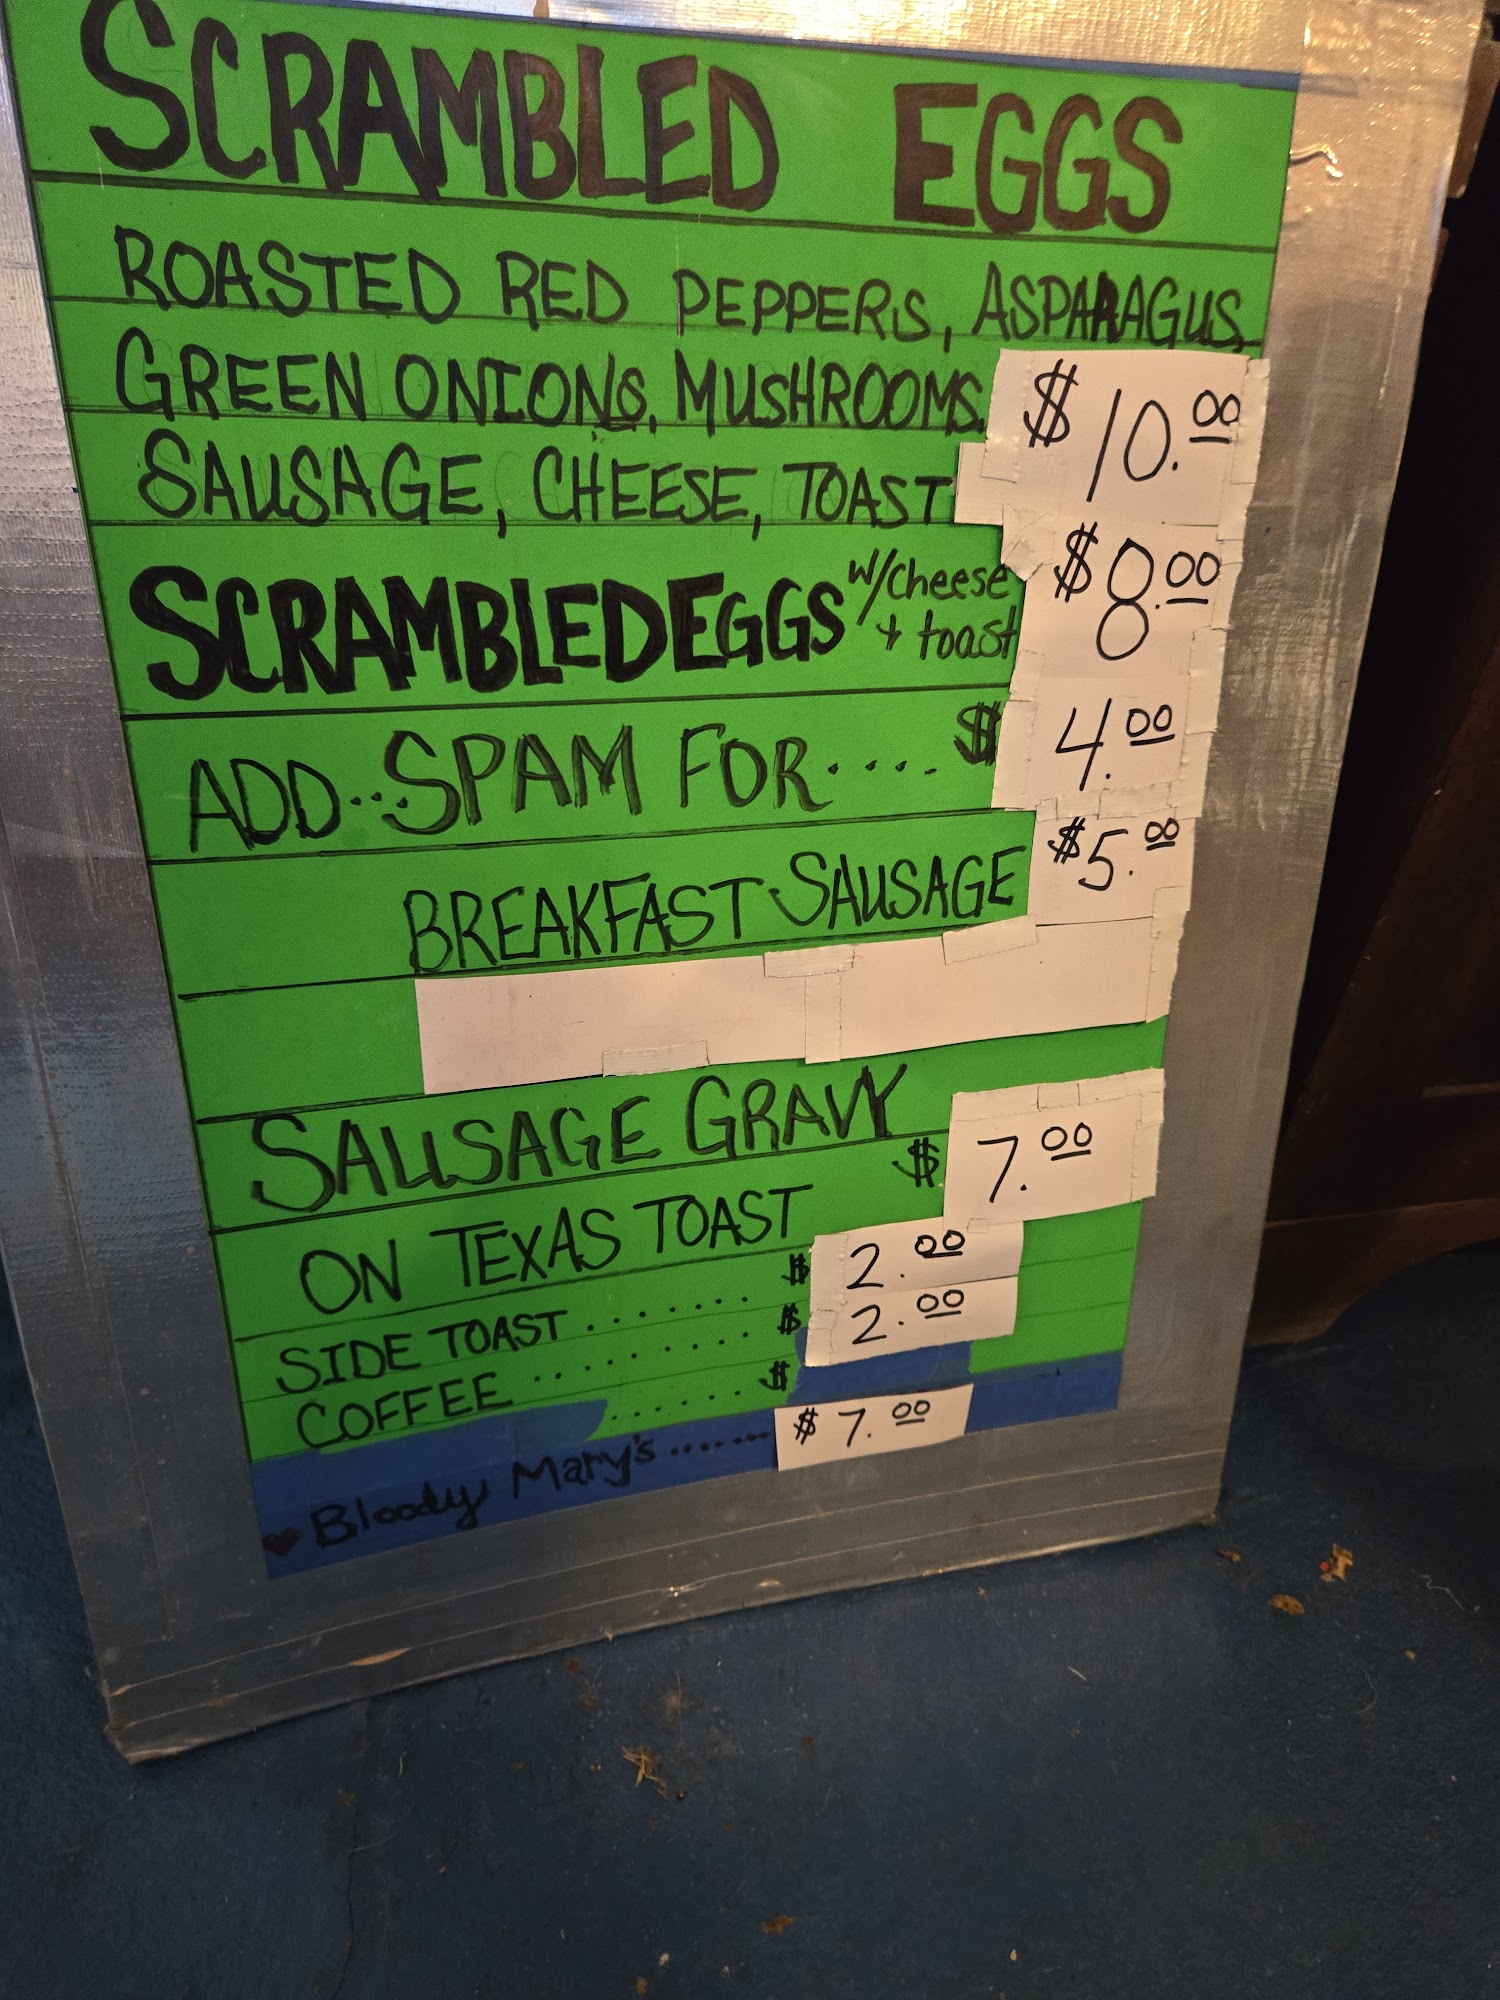 SCRAMBLED EGGS
ROASTED RED PEPPERS, ASPARAGUS,
GREEN ONIONS, MUSHROOMS, $10.00
SAUSAGE, CHEESE, TOAST
SCRAMBLED EGGS w/cheese + toast $8.00
ADD...SPAM FOR.....$ 4.00
BREAKFAST SAUSAGE $5.00
SAUSAGE GRAVY
ON TEXAS TOAST $ 7.00
SIDE TOAST.......$ 2.00
COFFEE........$ 2.00
.....$
♥ Bloody Mary's....... $7.00